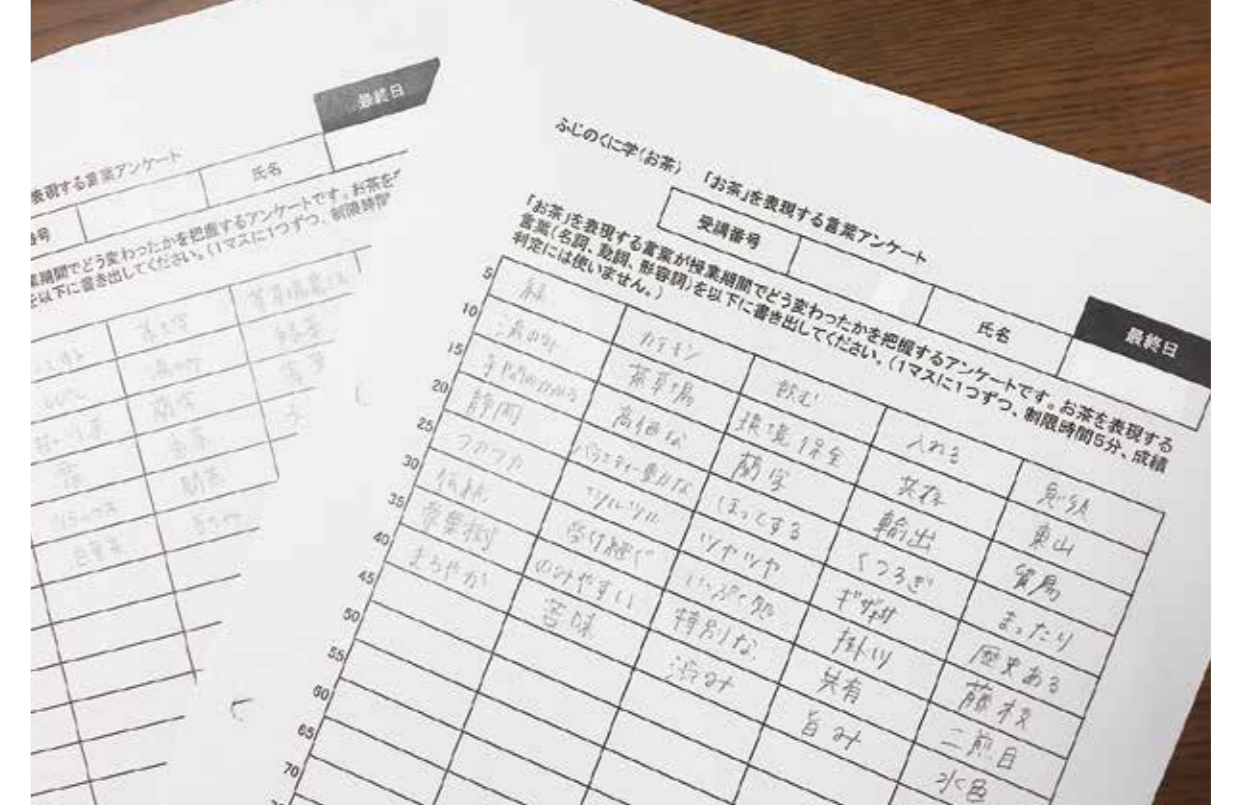 最終日
表現する言葉アンケート
番号 氏名
業期間でどう変わったかを把握するアンケートです。お茶を
を以下に書き出してください。(1マスに1つずつ、制限時間
湯のみ
蘭字
リラックス
ふじのくに学(お茶) 「お茶」を表現する言葉アンケート
最終日
受講番号 氏名
「お茶」を表現する言葉が授業期間でどう変わったかを把握するアンケートです。お茶を表現する
言葉(名詞、動詞、形容詞)を以下に書き出してください。(1マスに1つずつ、制限時間5分、成績
判定には使いません。)
5 緑 カテキン 飲む 入れる 急須
10 湯のみ 茶草場 環境保全 共存 東山
15 高価な 蘭字 輸出 貿易
20 静岡 バラエティー豊かな ほっとする くつろぎ まったり
25 フカフカ ツルツル ツヤツヤ 歴史ある
30 伝統 受け継ぐ いっぷく処 掛川 藤枝
35 常葉樹 のみやすい 特別な 共有 二煎目
40 まろやか 苦味 渋み 旨み 水色
45
50
55
60
65
70